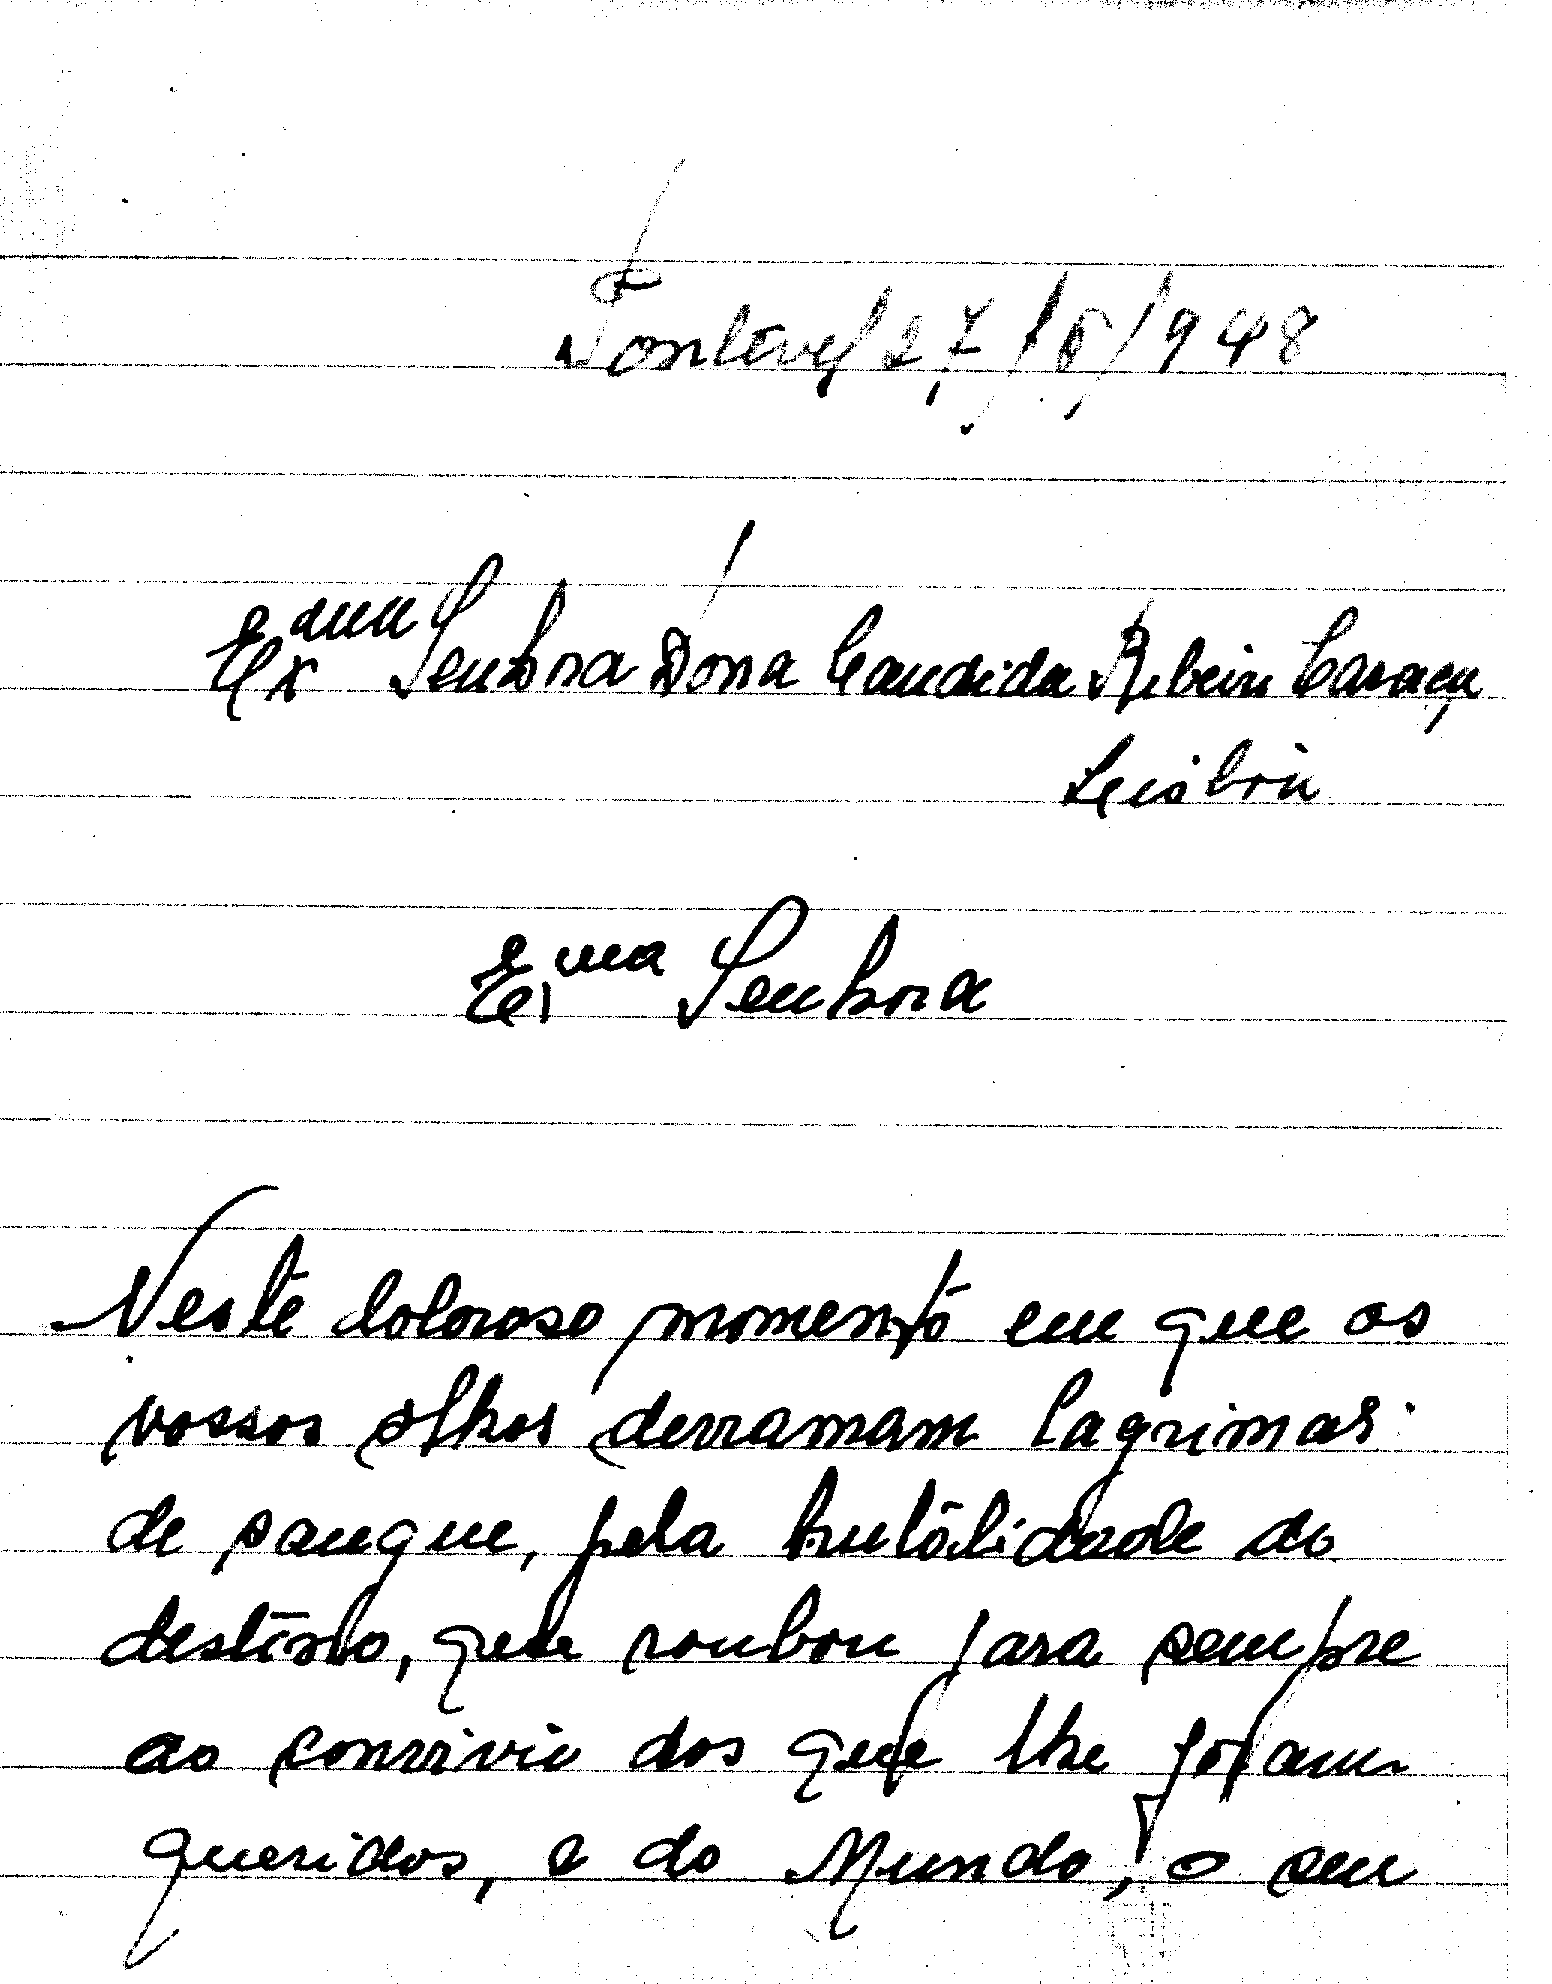 Pontével 27/6/948
Exma Senhora Dona Candida Ribeiro Caraça
Lisboa
Exma Senhora
Neste doloroso momento em que os
vossos olhos derramam lagrimas
de sangue, pela brutalidade do
destino, que roubou para sempre
ao convivio dos que lhe foram
queridos, e do Mundo, o seu